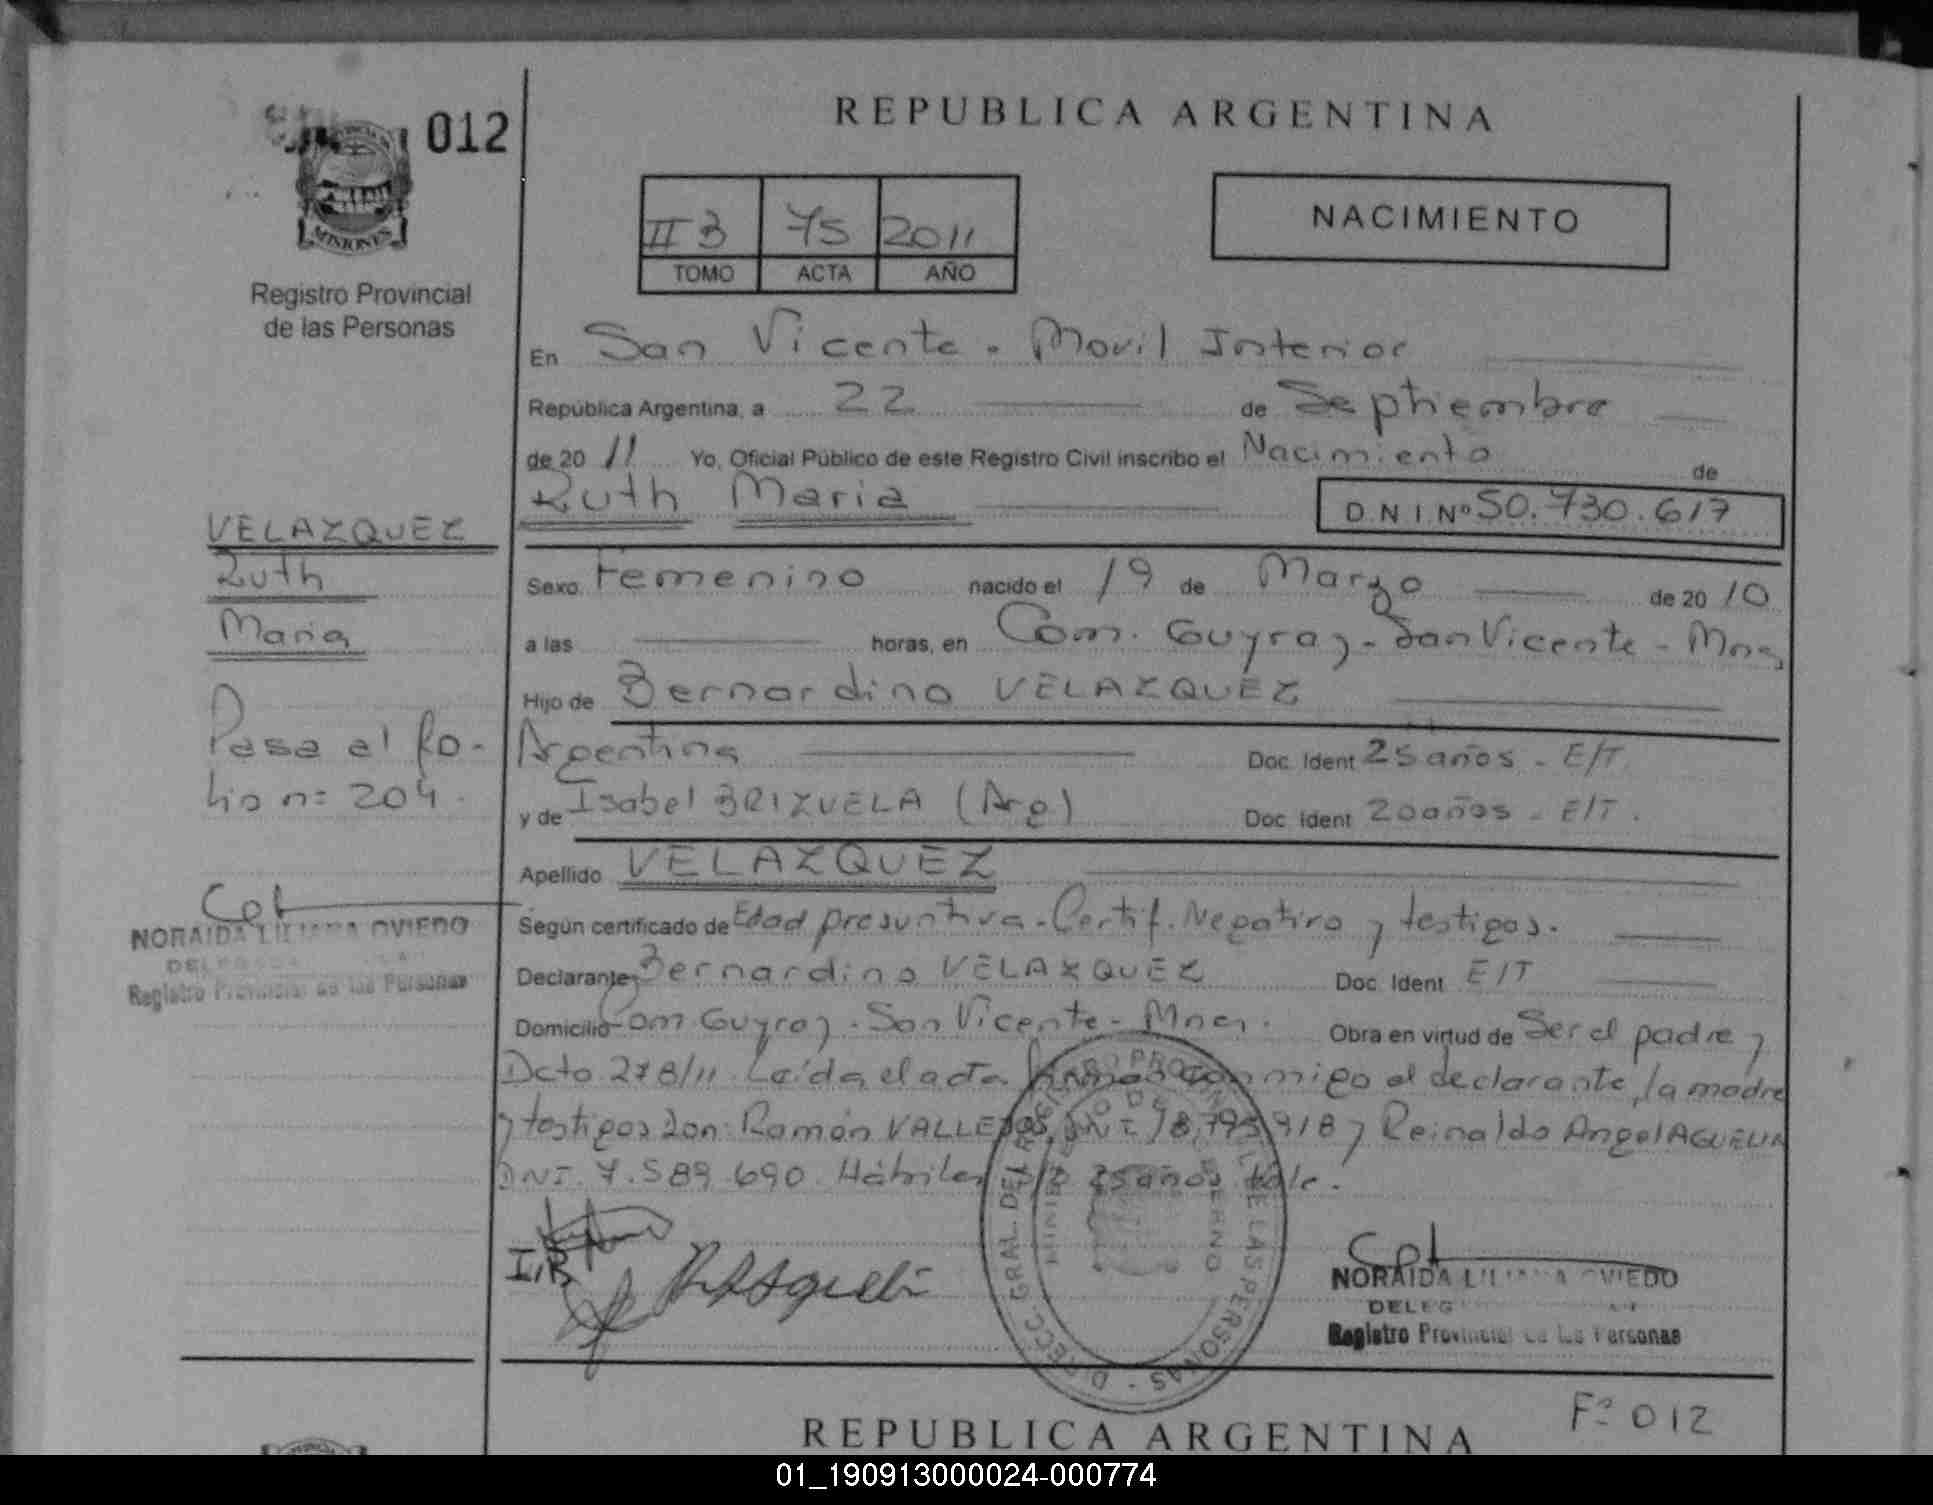 012
MISIONES
Registro Provincial
de las Personas
REPUBLICA ARGENTINA
II B 75 2011
TOMO ACTA AÑO
NACIMIENTO
En San Vicente - Movil Interior
República Argentina, a 22 de Septiembre
de 2011 Yo, Oficial Público de este Registro Civil inscribo el Nacimiento de
Ruth Maria
D N I Nº 50.730.617
VELAZQUEZ
Ruth
Maria
Sexo Femenino nacido el 19 de Marzo de 2010
a las horas, en Com. Guyray - San Vicente - Mnes
Hijo de Bernardino VELAZQUEZ
Argentina Doc. Ident 25 años - E/T
y de Isabel BRIZUELA (Arg) Doc. Ident 20 años - E/T.
Pasa al fo-
lio nº 204.
Apellido VELAZQUEZ
Según certificado de Edad presuntiva - Certif. Negativo y testigos.
Declarante Bernardino VELAZQUEZ Doc. Ident E/T
Domicilio Com Guyray - San Vicente - Mnes. Obra en virtud de Ser el padre y
Dcto 278/11. Leída el acta firman conmigo el declarante, la madre
y testigos Don: Ramón VALLEJOS, DNI 18.795.918 y Reinaldo Angel
DNI. 7.589.690. Hábiles 25 años vale.
NORAIDA LILIANA OVIEDO
Registro Provincial de las Personas
I.B
DIRECC. GRAL. DEL REGISTRO PROVINCIAL DE LAS PERSONAS
MINISTERIO DE GOBIERNO
NORAIDA LILIANA OVIEDO
Registro Provincial de las Personas
Fº 012
REPUBLICA ARGENTINA
01_190913000024-000774